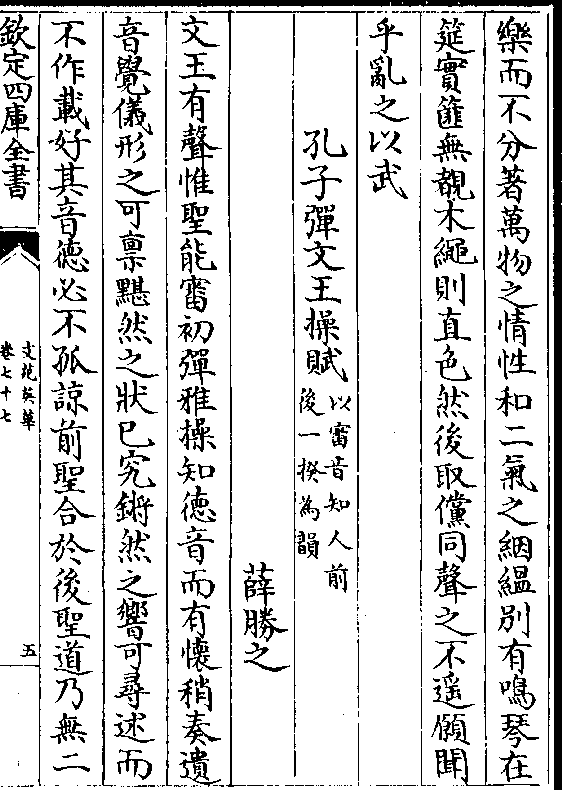 樂而不分著萬物之情性和二氣之絪緼別有鳴琴在
筵實篚無覩木繩則直色然後取儻同聲之不遥願聞
乎亂之以武
孔子彈文王操賦以審音知人前後一揆為韻
薛勝之
文王有聲惟聖能審初彈雅操知德音而有懷稍奏遺
音覺儀形之可稟黮然之狀已究鏘然之響可尋述而
不作載好其音德必不孤諒前聖合於後聖道乃無二
欽定四庫全書
文苑英華
卷七十七
五